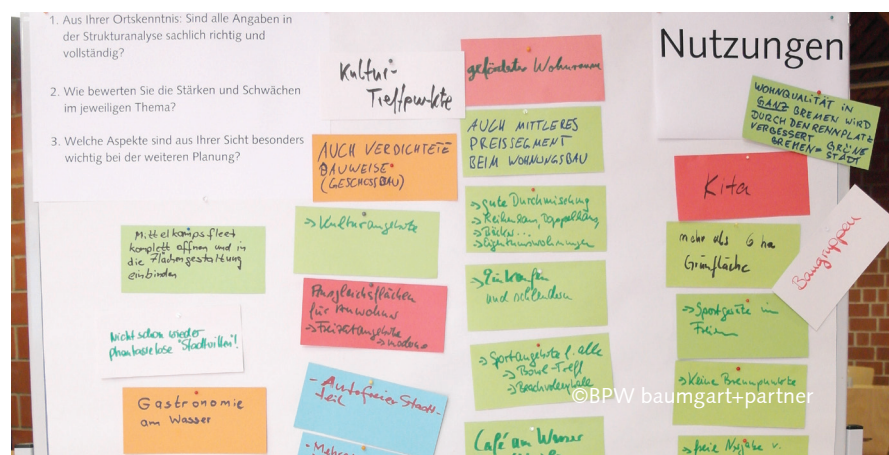 1. Aus Ihrer Ortskenntnis: Sind alle Angaben in
der Strukturanalyse sachlich richtig und
vollständig?
2. Wie bewerten Sie die Stärken und Schwächen
im jeweiligen Thema?
3. Welche Aspekte sind aus Ihrer Sicht besonders
wichtig bei der weiteren Planung?
Mittelkampsfleet
komplett öffnen und in
die Flächengestaltung
einbinden
Nicht schon wieder
phantasielose "Stadtvillen"!
Gastronomie
am Wasser
Kultur-
Treffpunkte
AUCH VERDICHTETE
BAUWEISE
(GESCHOSSBAU)
→ Kulturangebote
Ausgleichsflächen
für Anwohner
→ Freizeitangebote
- Autofreier Stadt-
teil
geförderter Wohnraum
AUCH MITTLERES
PREISSEGMENT
BEIM WOHNUNGSBAU
→ gute Durchmischung
→ Reihenhaus,
→ Bäcker...
→ Eigentumswohnungen
→ Einkaufen
und schlendern
→ Sportangebote f. alle
→ Boule-Treff
→ Beachvolleyball
Café am Wasser
Nutzungen
WOHNQUALITÄT IN
GANZ BREMEN WIRD
DURCH DEN RENNPLATZ
VERBESSERT GRÜNE
BREMEN= STADT
Kita
mehr als 6 ha
Grünfläche
Baugruppen
→ Sportgeräte im
Freien
→ Keine Brennpunkte
→ freie
©BPW baumgart+partner